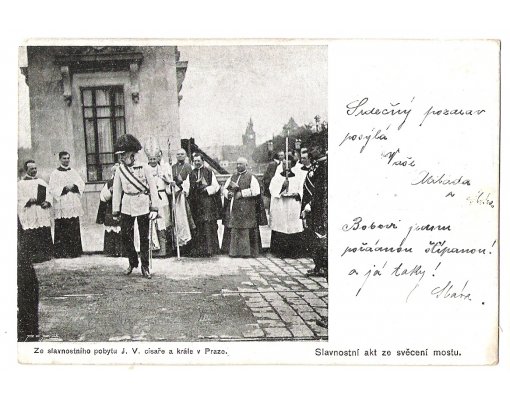 Srdečný pozdrav
posýlá
Vaše
Milada
a
Bobovi jednu
pořádnou štípanou!
a já taky!
Ze slavnostního pobytu J. V. císaře a krále v Praze.
Slavnostní akt ze svěcení mostu.